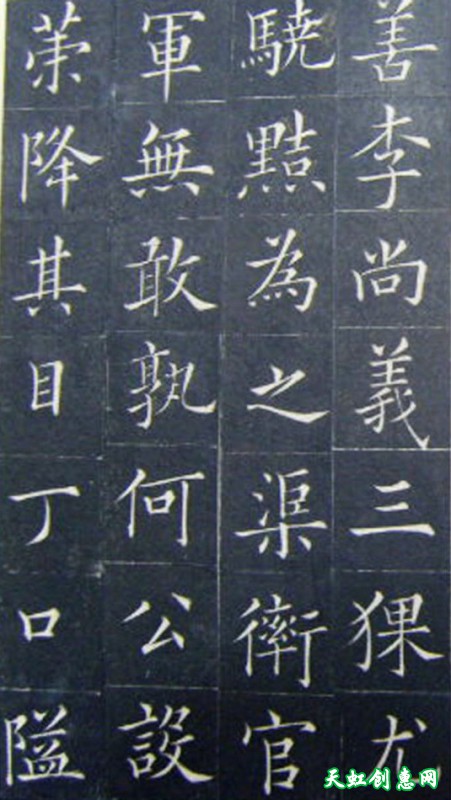 善李尚義三猓尤
驍黠為之渠衛官
軍無敢孰何公設
策降其目丁口隘
天虹创惠网